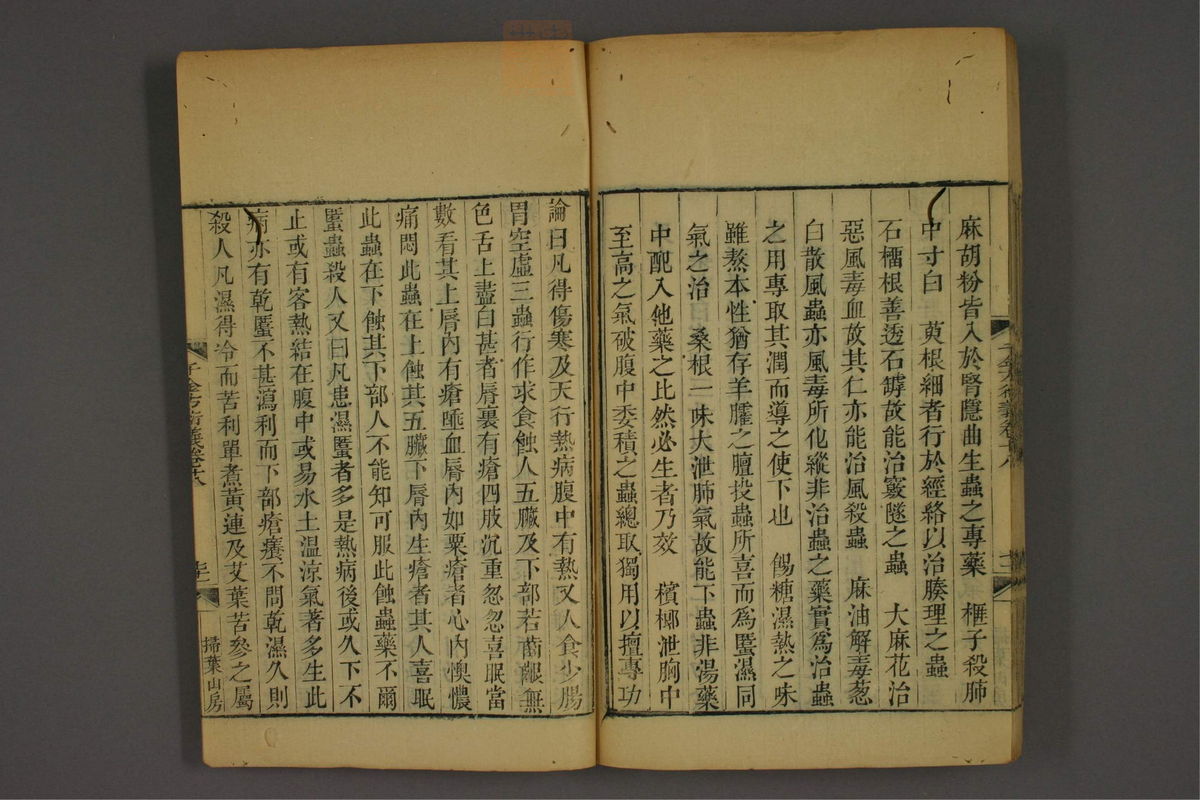 麻胡粉皆入於腎隱曲生蟲之專藥　榧子殺肺
中寸白　萸根細者行於經絡以治腠理之蟲
石橊根善透石罅故能治竅隧之蟲　大麻花治
惡風毒血故其仁亦能治風殺蟲　麻油解毒葱
白散風蟲亦風毒所化縱非治蟲之藥實爲治蟲
之用專取其潤而導之使下也　餳糖濕熱之味
雖熬本性猶存羊臛之膻投蟲所喜而爲䘌濕同
氣之治　桑根一味大泄肺氣故能下蟲非湯藥
中配入他藥之比然必生者乃效　檳榔泄胸中
至高之氣破腹中委積之蟲總取獨用以擅專功
論曰凡得傷寒及天行熱病腹中有熱又人食少腸
胃空虛三蟲行作求食蝕人五臟及下部若齒齦無
色舌上盡白甚者脣裏有瘡四肢沉重忽忽喜眠當
數看其上脣內有瘡唾血脣內如粟瘡者心內懊憹
痛悶此蟲在上蝕其五臟下脣內生瘡者其人喜眠
此蟲在下蝕其下部人不能知可服此蝕蟲藥不爾
䘌蟲殺人又曰凡患濕䘌者多是熱病後或久下不
止或有客熱結在腹中或易水土溫涼氣著多生此
病亦有乾䘌不甚瀉利而下部瘡癢不問乾濕久則
殺人凡濕得冷而苦利單煮黃連及艾葉苦參之屬
千金方衍義卷十八
掃葉山房